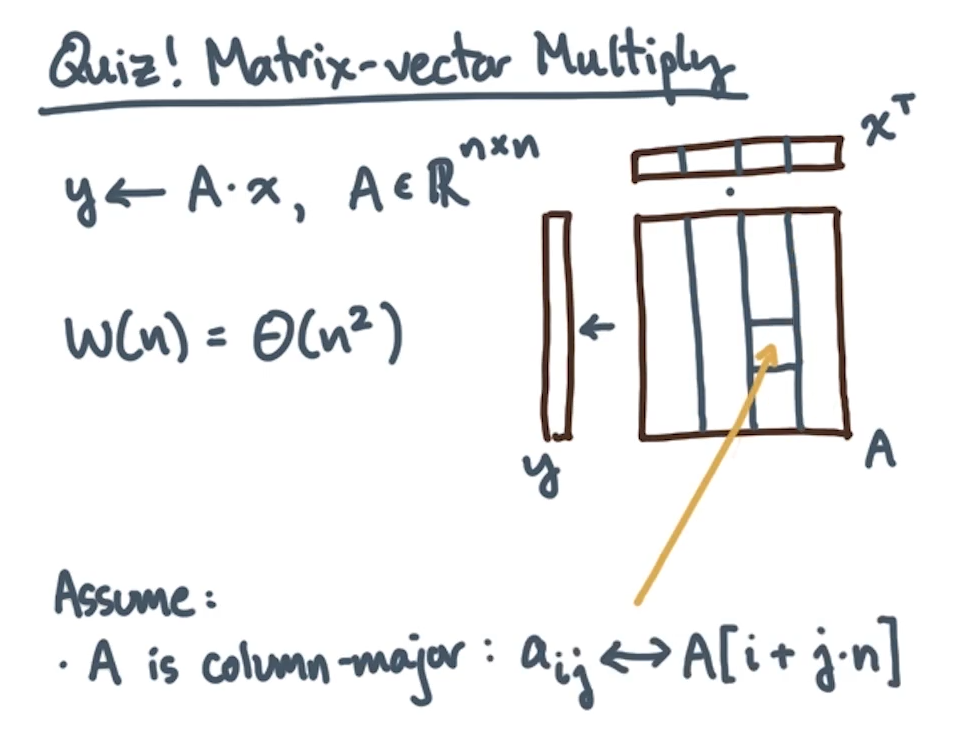 Quiz! Matrix-vector Multiply
xᵀ
y ← A·x, A ∈ ℝⁿˣⁿ
W(n) = Θ(n²)
y
A
Assume:
· A is column-major: aᵢⱼ ↔ A[i + j·n]